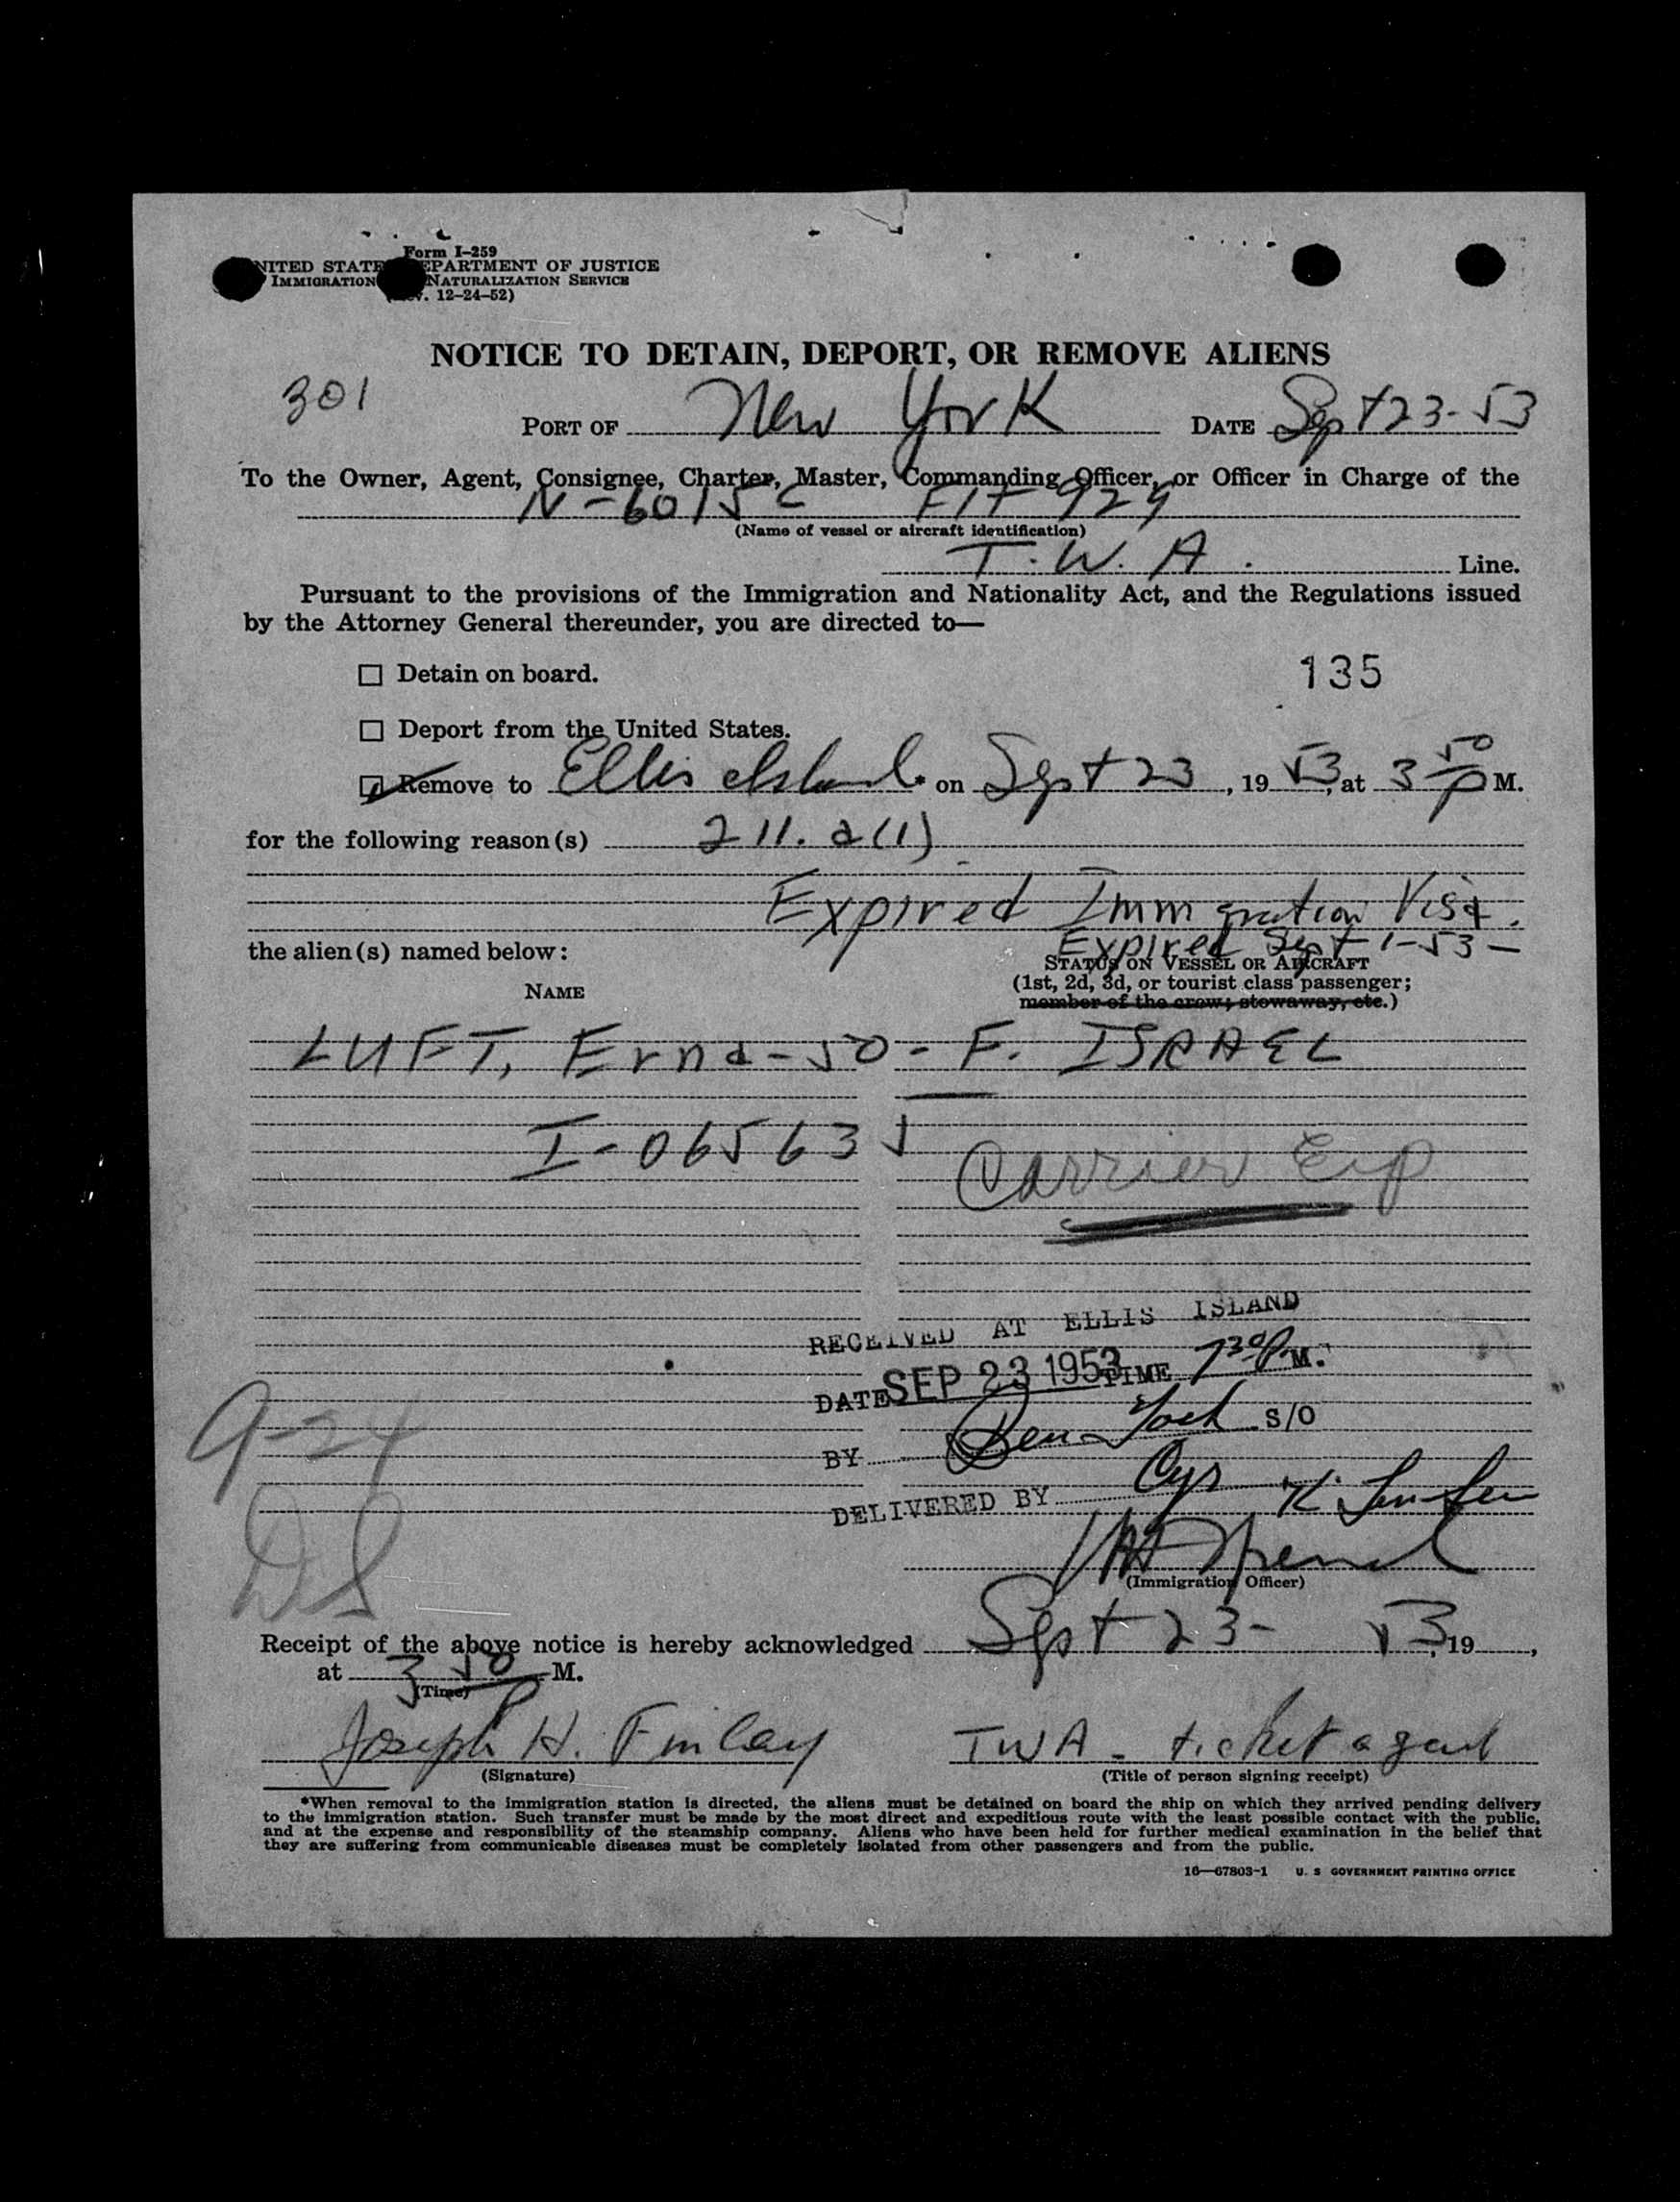 Form I-259
NITED STATE EPARTMENT OF JUSTICE
IMMIGRATION NATURALIZATION SERVICE
v. 12-24-52)
NOTICE TO DETAIN, DEPORT, OR REMOVE ALIENS
301
PORT OF New York DATE Sept 23-53
To the Owner, Agent, Consignee, Charter, Master, Commanding Officer, or Officer in Charge of the
N-6015C Flt 929
(Name of vessel or aircraft identification)
T.W.A. Line.
Pursuant to the provisions of the Immigration and Nationality Act, and the Regulations issued
by the Attorney General thereunder, you are directed to—
☐ Detain on board. 135
☐ Deport from the United States.
Remove to Ellis Island * on Sept 23, 1953, at 3 50 P M.
for the following reason(s) 211. a(1)
Expired Immigration Visa.
Expired Sept 1-53-
the alien(s) named below:
STATUS ON VESSEL OR AIRCRAFT
NAME (1st, 2d, 3d, or tourist class passenger;
member of the crew; stowaway, etc.)
LUFT, Erna-50-F. ISRAEL
I-065635
Carrier Exp
RECEIVED AT ELLIS ISLAND
DATE SEP 23 1953 TIME 730 P.M.
BY Ben S/O
9-24
DELIVERED BY
DS
(Immigration Officer)
Receipt of the above notice is hereby acknowledged Sept 23- 53, 19 ,
at 3 50 P M.
(Time)
Joseph H. Finlay TWA - ticket agent
(Signature) (Title of person signing receipt)
*When removal to the immigration station is directed, the aliens must be detained on board the ship on which they arrived pending delivery
to the immigration station. Such transfer must be made by the most direct and expeditious route with the least possible contact with the public,
and at the expense and responsibility of the steamship company. Aliens who have been held for further medical examination in the belief that
they are suffering from communicable diseases must be completely isolated from other passengers and from the public.
16—67803-1 U. S GOVERNMENT PRINTING OFFICE